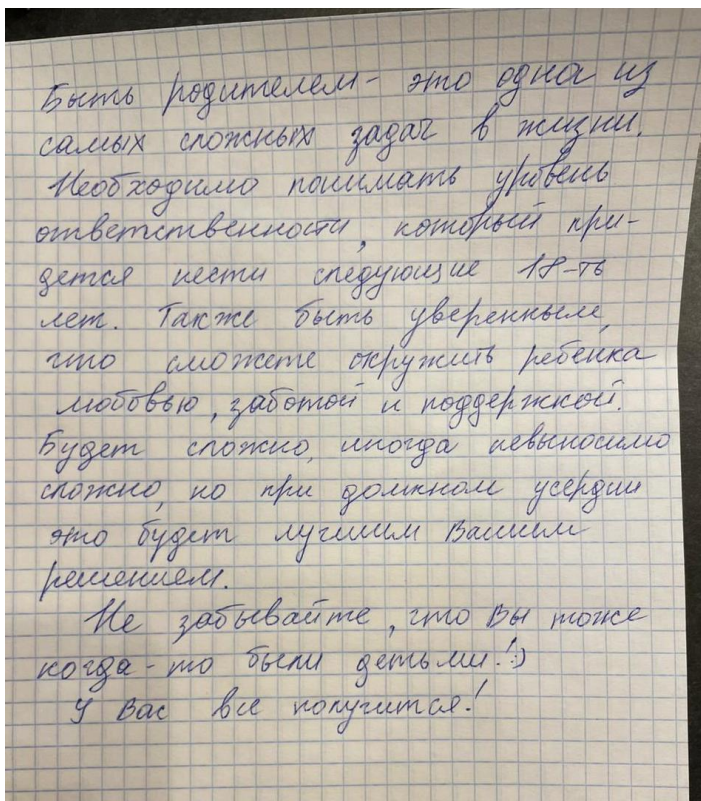 Быть родителем - это одна из
самых сложных задач в жизни.
Необходимо понимать уровень
ответственности, который при-
дется нести следующие 18-ть
лет. Также быть уверенным,
что сможете окружить ребенка
любовью, заботой и поддержкой.
Будет сложно, иногда невыносимо
сложно, но при должном усердии
это будет лучшим Вашим
решением.
Не забывайте, что Вы тоже
когда-то были детьми! :)
У Вас все получится!